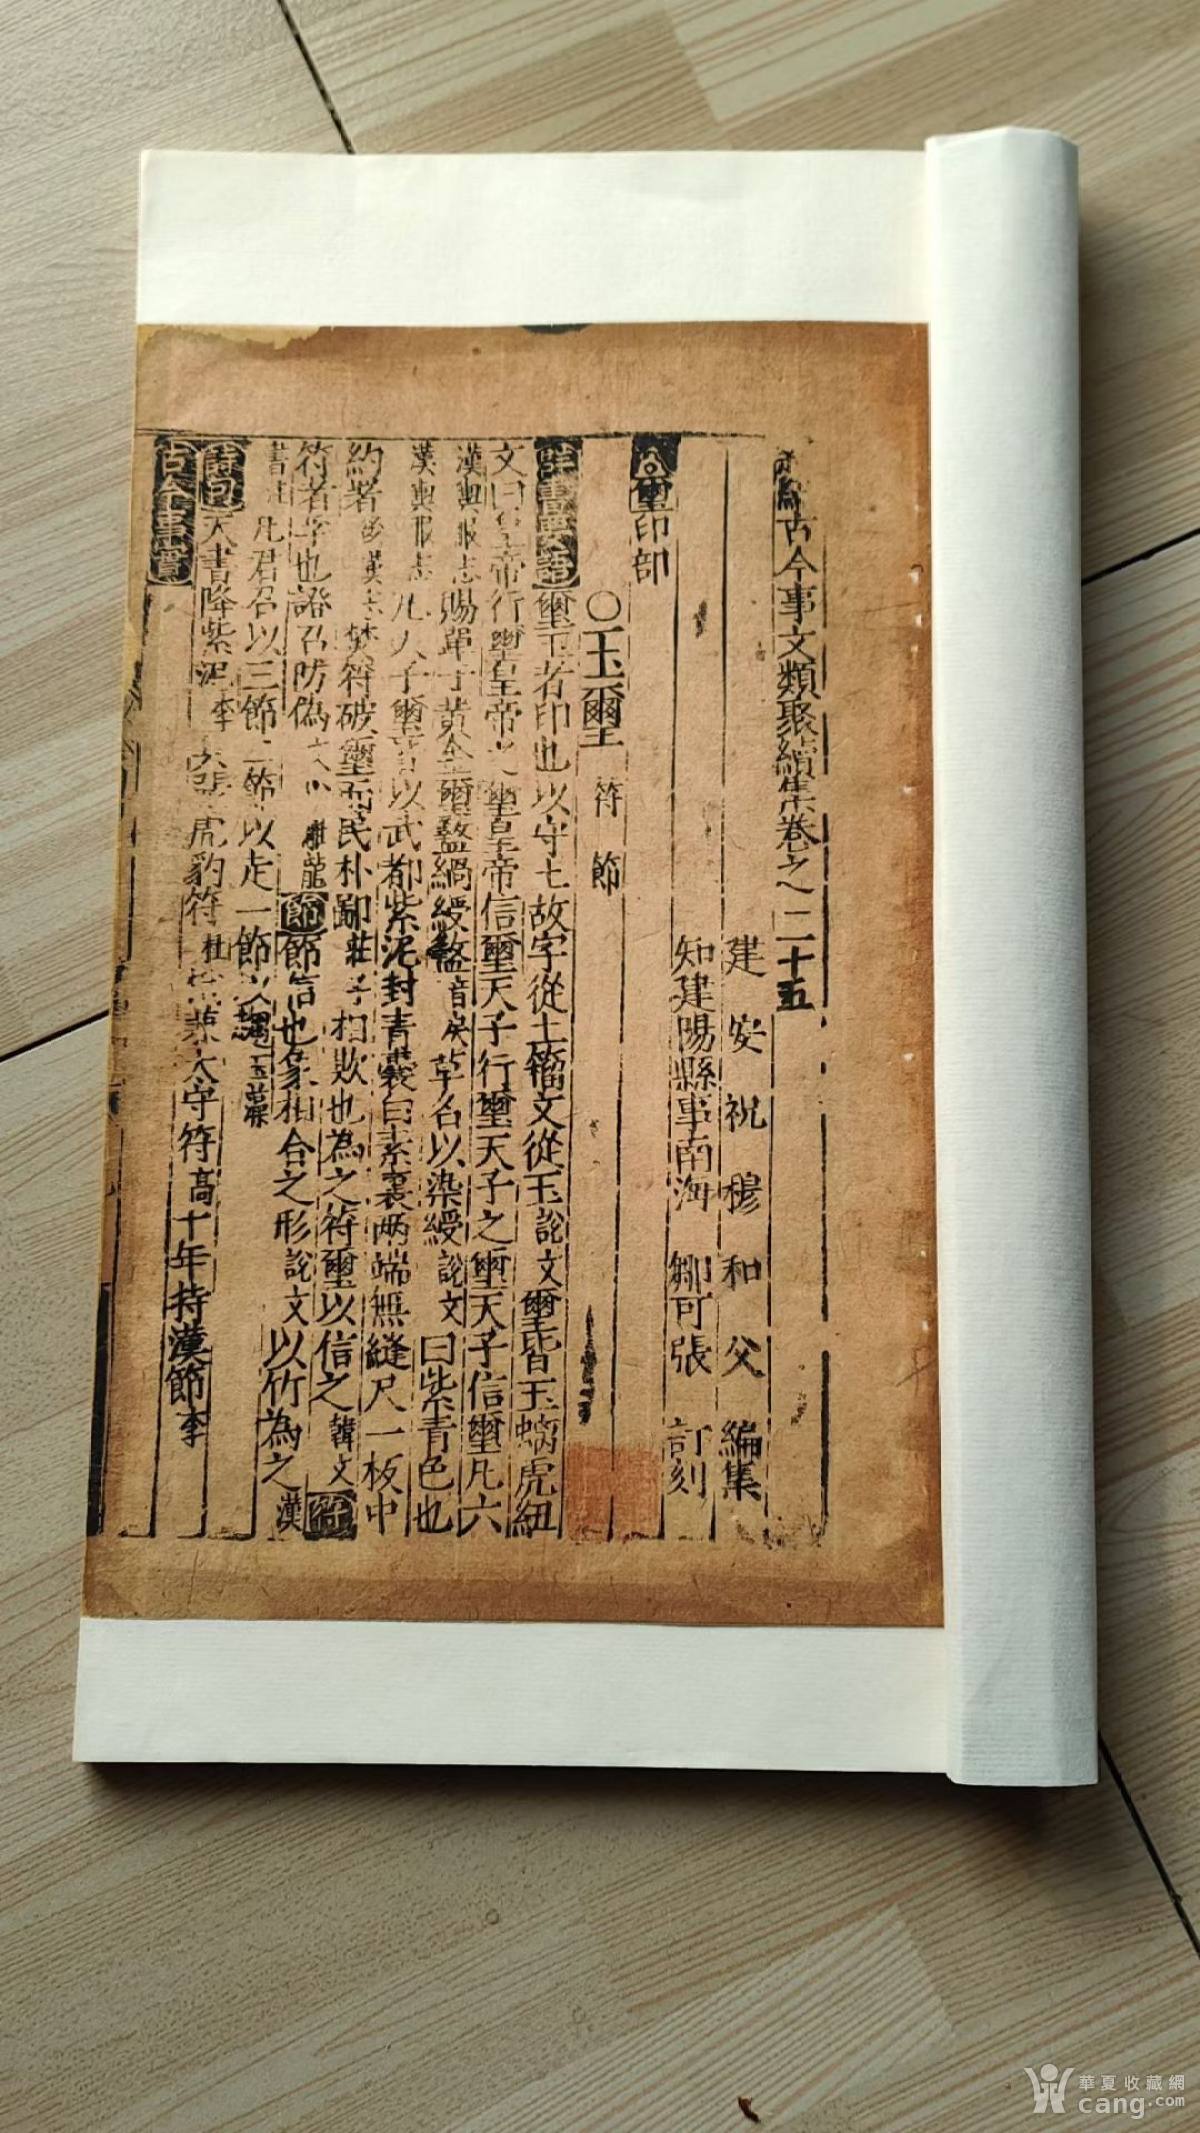 新編古今事文類聚續集卷之二十五
建安祝穆和父編集
知建陽縣事南海鄒可張訂刻
璽印部
○玉璽 符節
羣書要語 璽王者印也以守土故字從土籀文從玉說文 璽皆玉螭虎紐
文曰皇帝行璽皇帝之璽皇帝信璽天子行璽天子之璽天子信璽凡六
漢輿服志 賜單于黃金璽盭綟綬盭音戾草名以染綬說文曰紫青色也
漢輿服志 凡天子璽書以武都紫泥封青囊白素裏兩端無縫尺一板中
約者 焚符破璽而民朴鄙莊子 相欺也為之符璽以信之韓文 符
符者孚也證召防偽 雕龍 節 節信也象相合之形說文 以竹為之漢
書註 凡君召以三節二節以走一節以趨玉藻
詩句 天書降紫泥李 虎豹符杜 太守符高 十年持漢節李
古今事實